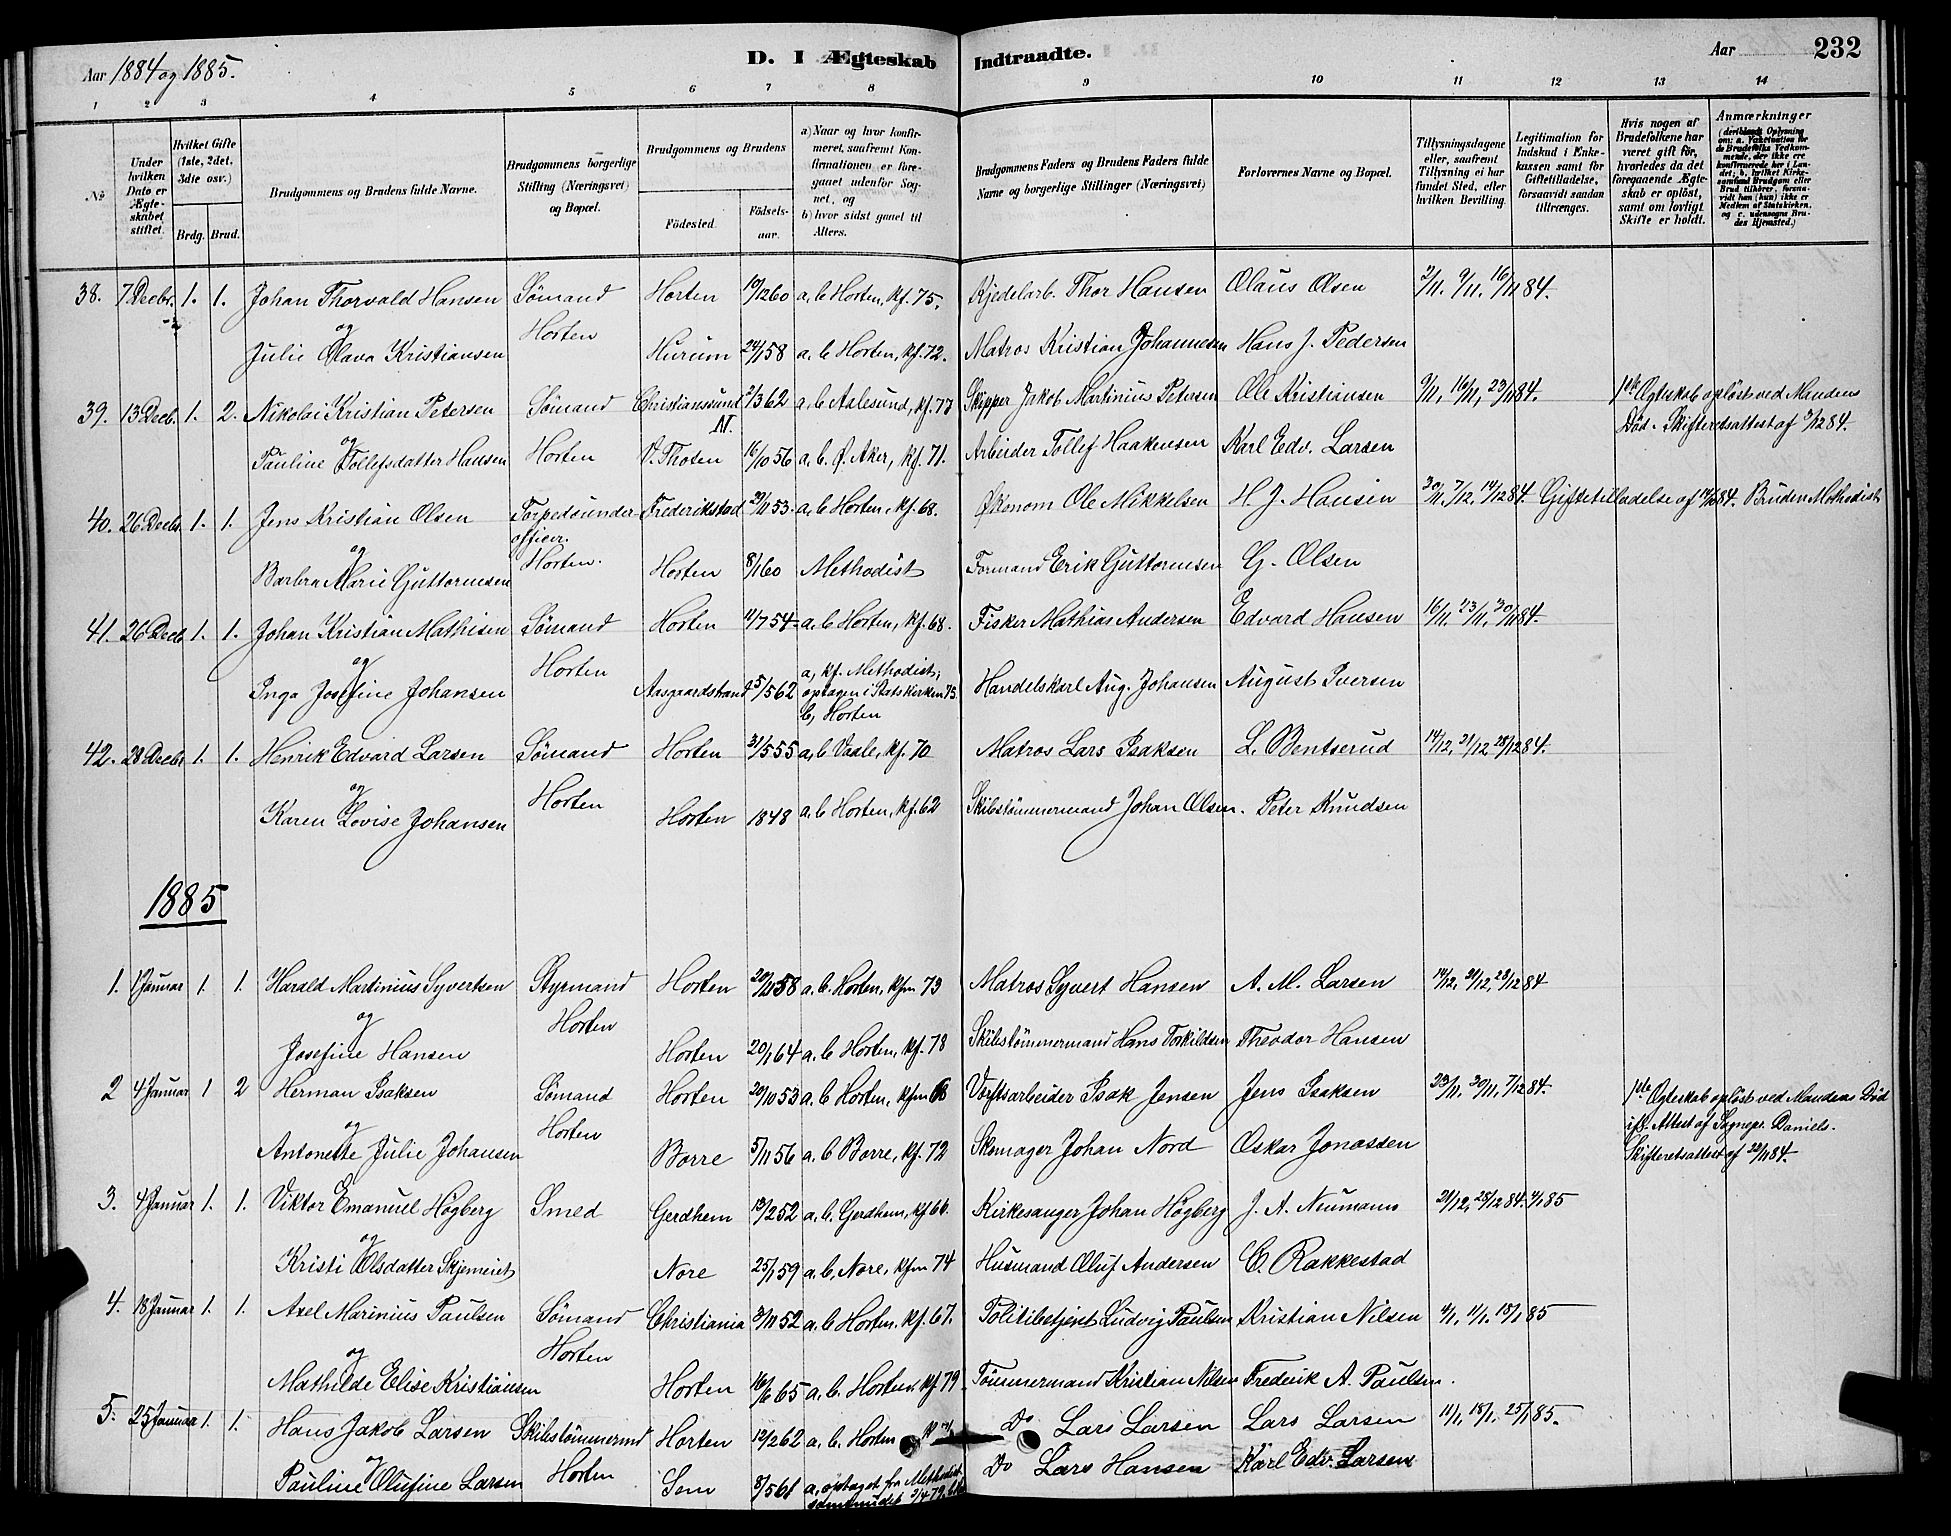 Aar 1884 og 1885. D. I Ægteskab Indtraadte. Aar 232
1 2 3 4 5 6 7 8 9 10 11 12 13 14
№
Under hvilken Dato er Ægteskabet stiftet.
Hvilket Gifte (1ste, 2det, 3die osv.)
Brdg. Brud.
Brudgommens og Brudens fulde Navne.
Brudgommens borgerlige Stilling (Næringsvei) og Bopæl.
Brudgommens og Brudens
Fødested. Fødselsaar.
a) Naar og hvor konfirmeret, saafremt Konfirmationen er foregaaet udenfor Sognet, og b) hvor sidst gaaet til Alters.
Brudgommens Faders og Brudens Faders fulde Navne og borgerlige Stillinger (Næringsvei)
Forlovernes Navne og Bopæl.
Tillysningsdagene eller, saafremt Tillysning ei har fundet Sted, efter hvilken Bevilling.
Legitimation for Indskud i Enkekassen samt for Giftetilladelse, forsaavidt saadan tiltrænges.
Hvis nogen af Brudefolkene har været gift før, hvorledes da det foregaaende Ægteskab er opløst, samt om lovligt Skifte er holdt.
Anmærkninger (deriblandt Oplysning om: a. Vaccination for de Brudefolks Vedkommende, der ikke ere konfirmerede her i Landet; b. hvilket Kirkesamfund Brudgom eller Brud tilhører, forsaavidt han (hun) ikke er Medlem af Statskirken, og c. udensogns Brudes Hjemsted.)
38. 7 Decbr. 1. 1. Johan Thorvald Hansen Sømand Horten 19/12 60 a, b Horten, kf. 75. Kjedelarb. Thor Hansen Olaus Olsen 2/11. 9/11. 16/11 84.
og Horten
Julie Olava Kristiansen Hurum 24/1 58 a, b Horten, kf. 72. Matros Kristian Johannesen Hans J. Pedersen
39. 13 Decb. 1. 2. Nikolai Kristian Petersen Sømand Christianssund N. 2/3 62 a, b Aalesund, kf. 77 Skipper Jakob Martinius Petersen Ole Kristiansen 9/11, 16/11, 23/11 84. 1ste Ægteskab opløst ved Mandens
og Horten Død. Skifteretsattest af 3/12 84.
Pauline Tollefsdatter Hansen V. Thoten 16/10 56 a. b. Ø. Aker, kf. 71. Arbeider Tollef Haakensen Karl Edv. Larsen
40. 26 Decbr 1. 1. Jens Kristian Olsen Torpedounderofficer. Frederikstad 29/11 53 a, b Horten, kf. 68. Økonom Ole Mikkelsen H. J. Hansen 30/11, 7/12, 14/12 84. Giftetilladelse af 14/11 84. Bruden Methodist
og Horten.
Barbra Marie Guttormsen Horten 8/1 60 Methodist Formand Erik Guttormsen G. Olsen
41. 26 Decb. 1. 1. Johan Kristian Mathisen Sømand Horten 11/7 54 a. b Horten, kf. 68. Fisker Mathias Andersen Edvard Hansen 16/11, 23/11, 30/11 84.
og Horten
Inga Josefine Johansen Aasgaardstrand 25/5 62 a, kf. Methodist; optagen i Statskirken 75. b, Horten Handelskarl Aug. Johansen August Iversen
42. 28 Decbr 1. 1. Henrik Edvard Larsen Sømand Horten 31/5 55 a, b Vaale, kf. 70 Matros Lars Isaksen L. Bentserud 14/12, 21/12 28/12 84.
og Horten
Karen Lovise Johansen Horten 1848 a. b Horten, kf. 62 Skibstømmermand Johan Olsen. Peter Knudsen
1885
1. 1 Januar 1 1. Harald Martinius Syvertsen Styrmand Horten 20/11 58 a. b. Horten, kfm 73 Matros Syvert Hansen A. M. Larsen 14/12, 21/12, 28/12 84
og Horten
Josefine Hansen Horten 20/1 64 a. b Horten, kf. 78 Skibstømmermand Hans Torkildsen Theodor Hansen
2 4 Januar 1 2 Herman Isaksen Sømand Horten 20/10 53 a. b Horten, kfm 68 Værftsarbeider Isak Jensen Jens Isaksen 23/11, 30/11, 7/12 84. 1ste Ægteskab opløst ved Mandens Død
og Horten ifl. Attest af Sognepr. Daniels.
Antonette Julie Johansen Borre 5/11 56 a. b Borre, kf. 72 Skomager Johan Nord Oskar Jonassen Skifteretsattest af 22/11 84.
3. 4 Januar 1. 1. Viktor Emanuel Høgberg Smed Gerdhem 13/2 52 a. b. Gerdhem, kf 66. Kirkesanger Johan Høgberg J. A. Neumann 21/12, 28/12 84. 4/1 85
og
Kristi Olsdatter Skjemeiet Nore 25/1 59 a. b. Nore, kfm 74 Husmand Oluf Andersen C. Rakkestad
4. 18 Januar 1. 1. Axel Marinius Paulsen Sømand Christiania 3/11 52 a. b Horten. kf. 67. Politibetjent Ludvig Paulsen Kristian Nilsen 4/1, 11/1. 18/1 85
og Horten
Mathilde Elise Kristiansen Horten 16/6 65 a. b. Horten. kf 79 Tømmermand Kristian Nilsen Frederik A. Paulsen.
5. 25 Januar 1. 1. Hans Jakob Larsen Skibstømmermd Horten 12/2 62 a. b. Horten Do Lars Larsen Lars Larsen 11/1, 18/1. 25/1 85.
og Horten
Pauline Olufine Larsen Sem 8/5 61 a, optaget fra Methodistsamfundet 3/4 79. Do Lars Hansen Karl Edv. Larsen